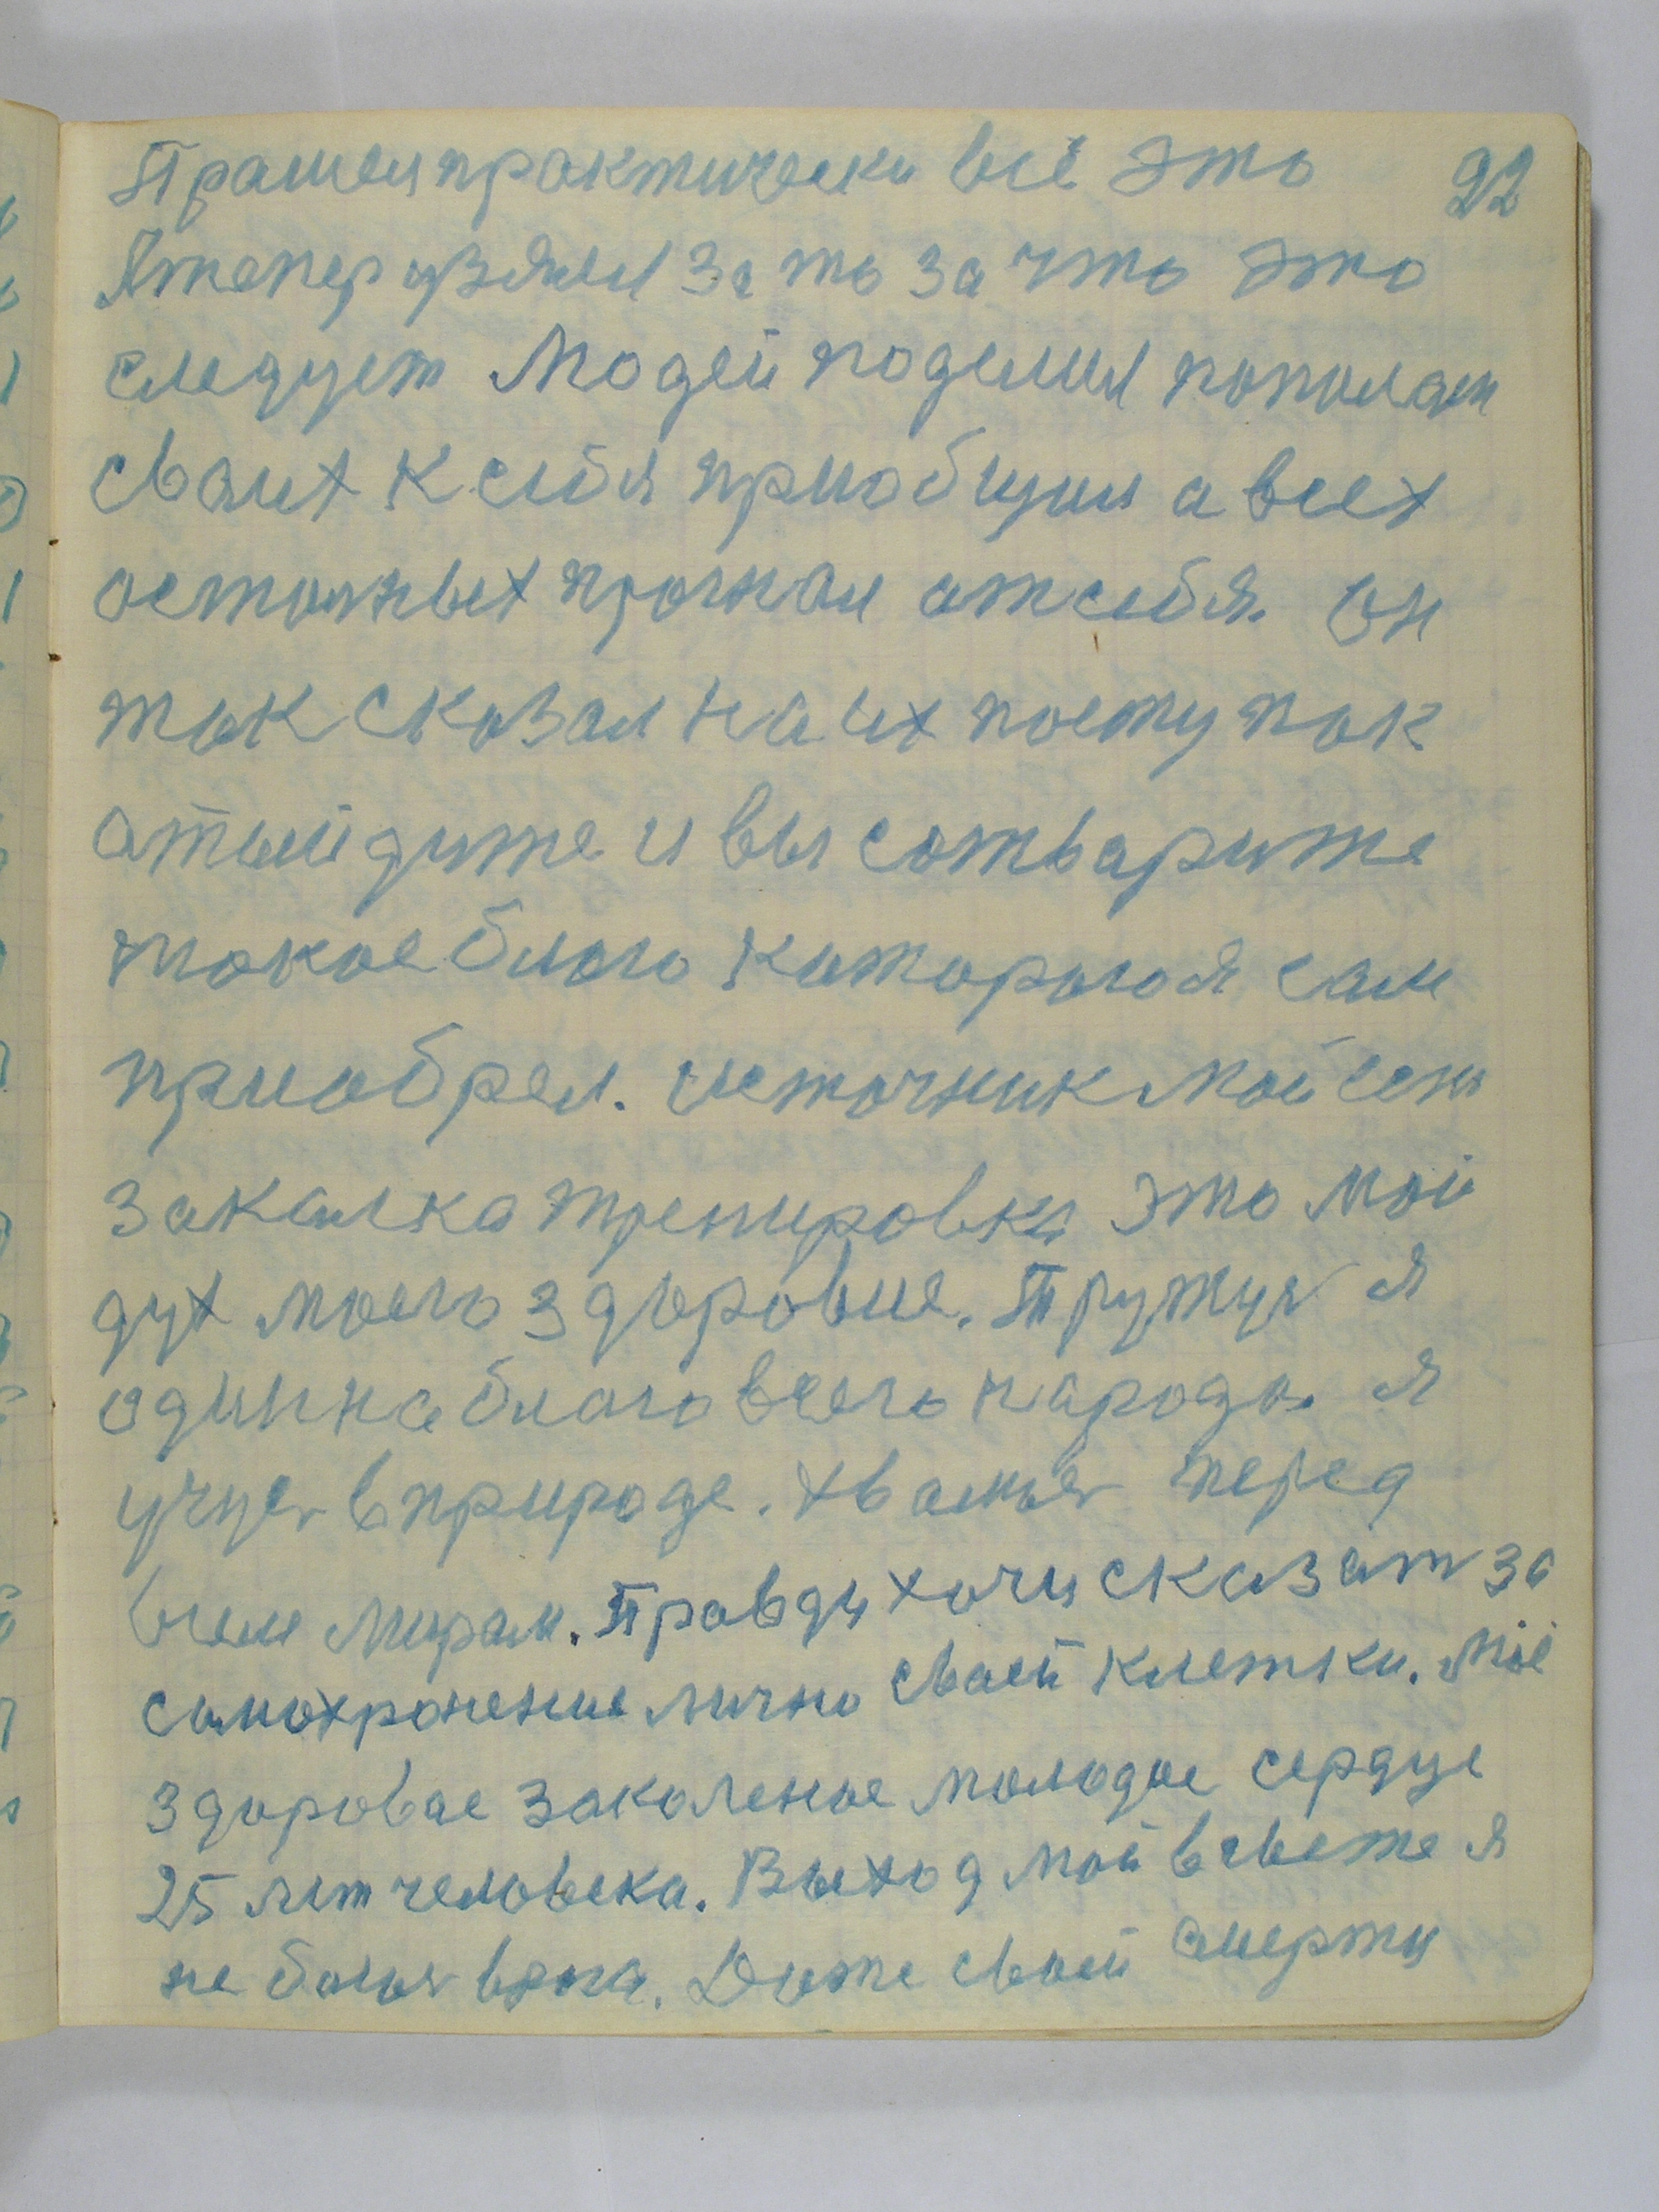 Прашел практически всё это 92
Я тепер узялся за то за что это
следует Людей поделил пополам
сваих к себя приобщил а всех
остальных прогнал ат себя. Он
так сказал на их поступак
атыйдите и вы сотварите
такое благо каторого я сам
приобрел. источник мой сень
закалка тренировка это мой
дух моего здоровие. Тружус я
один на благо всего народа я
учус в природе. хвалюс перед
всем мирам. Правду хочу сказат за
самохронение лично сваей клетки. Моё
здоровае закаленое молодое сердце
25 лет человека. Выход мой в свете я
не боюс врага. Даже своей смерти